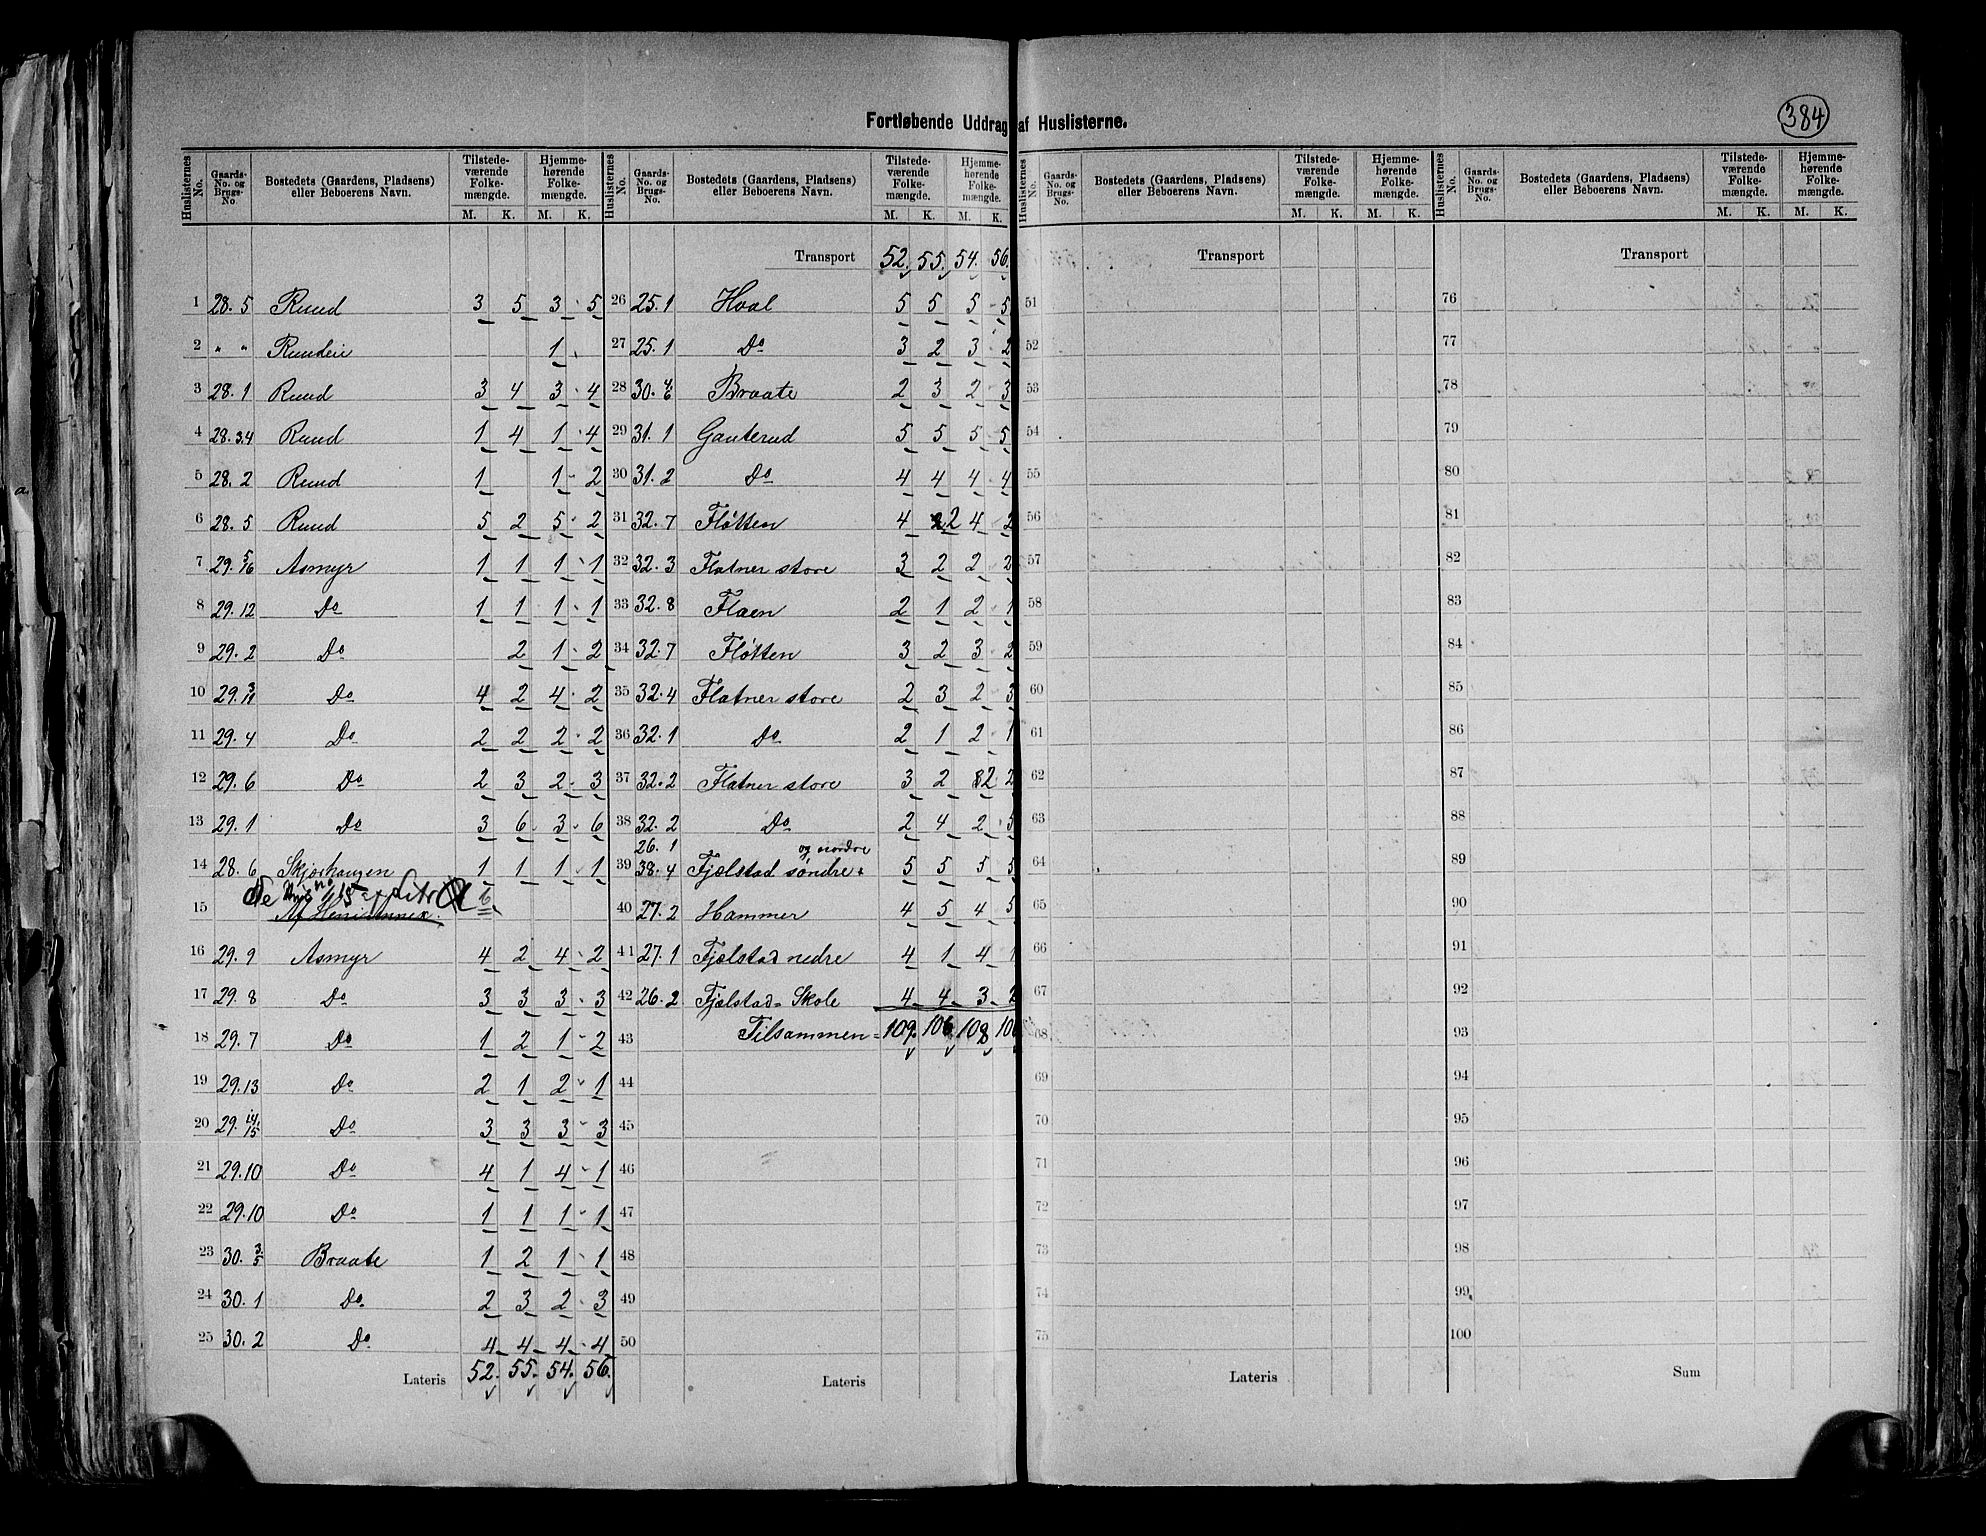 384
Fortløbende Uddrag af Huslisterne.
Huslisternes No. | Gaards-No. og Brugs-No. | Bostedets (Gaardens, Pladsens) eller Beboerens Navn. | Tilstedeværende Folkemængde. M. K. | Hjemmehørende Folkemængde. M. K.
1 28. 5 Ruud 3 5 3 5
2 " " Rundeie 1
3 28. 1 Ruud 3 4 3 4
4 28. 3.4 Ruud 1 4 1 4
5 28. 2 Ruud 1 1 2
6 28. 5 Ruud 5 2 5 2
7 29. 5/16 Asmyr 1 1 1 1
8 29. 12 Do 1 1 1 1
9 29. 2 Do 2 1 2
10 29. 3/11 Do 4 2 4 2
11 29. 4 Do 2 2 2 2
12 29. 6 Do 2 3 2 3
13 29. 1 Do 3 6 3 6
14 28. 6 Skjørhaugen 1 1 1 1
15
16 29. 9 Asmyr 4 2 4 2
17 29. 8 Do 3 3 3 3
18 29. 7 Do 1 2 1 2
19 29. 13 Do 2 1 2 1
20 29. 14/15 Do 3 3 3 3
21 29. 10 Do 4 1 4 1
22 29. 10 Do 1 1 1 1
23 30. 3/5 Braate 1 2 1 1
24 30. 1 Do 2 3 2 3
25 30. 2 Do 4 4 4 4
Lateris 52. 55. 54. 56.
Huslisternes No. | Gaards-No. og Brugs-No. | Bostedets (Gaardens, Pladsens) eller Beboerens Navn. | Tilstedeværende Folkemængde. M. K. | Hjemmehørende Folkemængde. M. K.
Transport 52. 55. 54. 56.
26 25. 1 Hval 5 5 5 5
27 25. 1 Do 3 2 3 2
28 30. 4/6 Braate 2 3 2 3
29 31. 1 Gauterud 5 5 5 5
30 31. 2 Do 4 4 4 4
31 32. 7 Fløtten 4 2 4 2
32 32. 3 Flatner store 3 2 2 2
33 32. 8 Flaen 2 1 2 1
34 32. 7 Fløtten 3 2 3 2
35 32. 4 Flatner store 2 3 2 3
36 32. 1 Do 2 1 2 1
37 32. 2 Flatner store 3 2 2 2
38 32. 2 Do 2 4 2 5
26. 1 og nordre
39 38. 4 Fjælstad søndre 5 5 5 5
40 27. 2 Hammer 4 5 4 5
41 27. 1 Fjælstad nedre 4 1 4 1
42 26. 2 Fjælstad - Skole 4 4 3 2
43 Tilsammen = 109. 106. 108
44
45
46
47
48
49
50
Lateris
Huslisternes No. | Gaards-No. og Brugs-No. | Bostedets (Gaardens, Pladsens) eller Beboerens Navn. | Tilstedeværende Folkemængde. M. K. | Hjemmehørende Folkemængde. M. K.
Transport
51
52
53
54
55
56
57
58
59
60
61
62
63
64
65
66
67
68
69
70
71
72
73
74
75
Lateris
Huslisternes No. | Gaards-No. og Brugs-No. | Bostedets (Gaardens, Pladsens) eller Beboerens Navn. | Tilstedeværende Folkemængde. M. K. | Hjemmehørende Folkemængde. M. K.
Transport
76
77
78
79
80
81
82
83
84
85
86
87
88
89
90
91
92
93
94
95
96
97
98
99
100
Sum